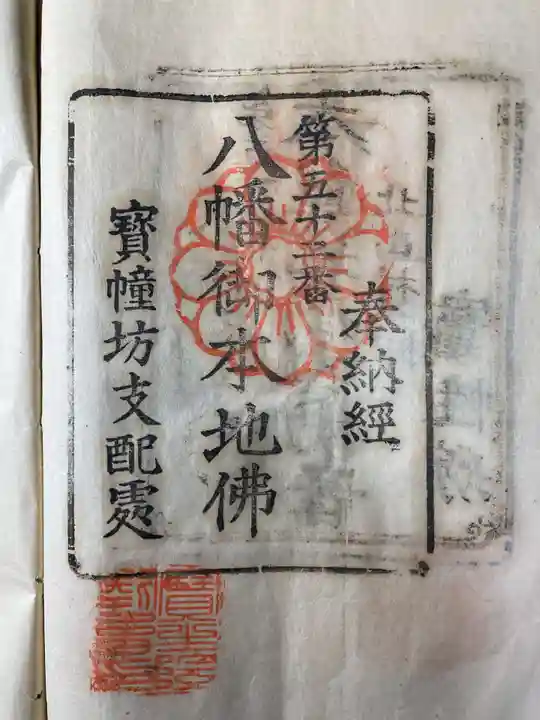 奉納經
第五十三番
八幡御本地佛
寳幢坊支配處